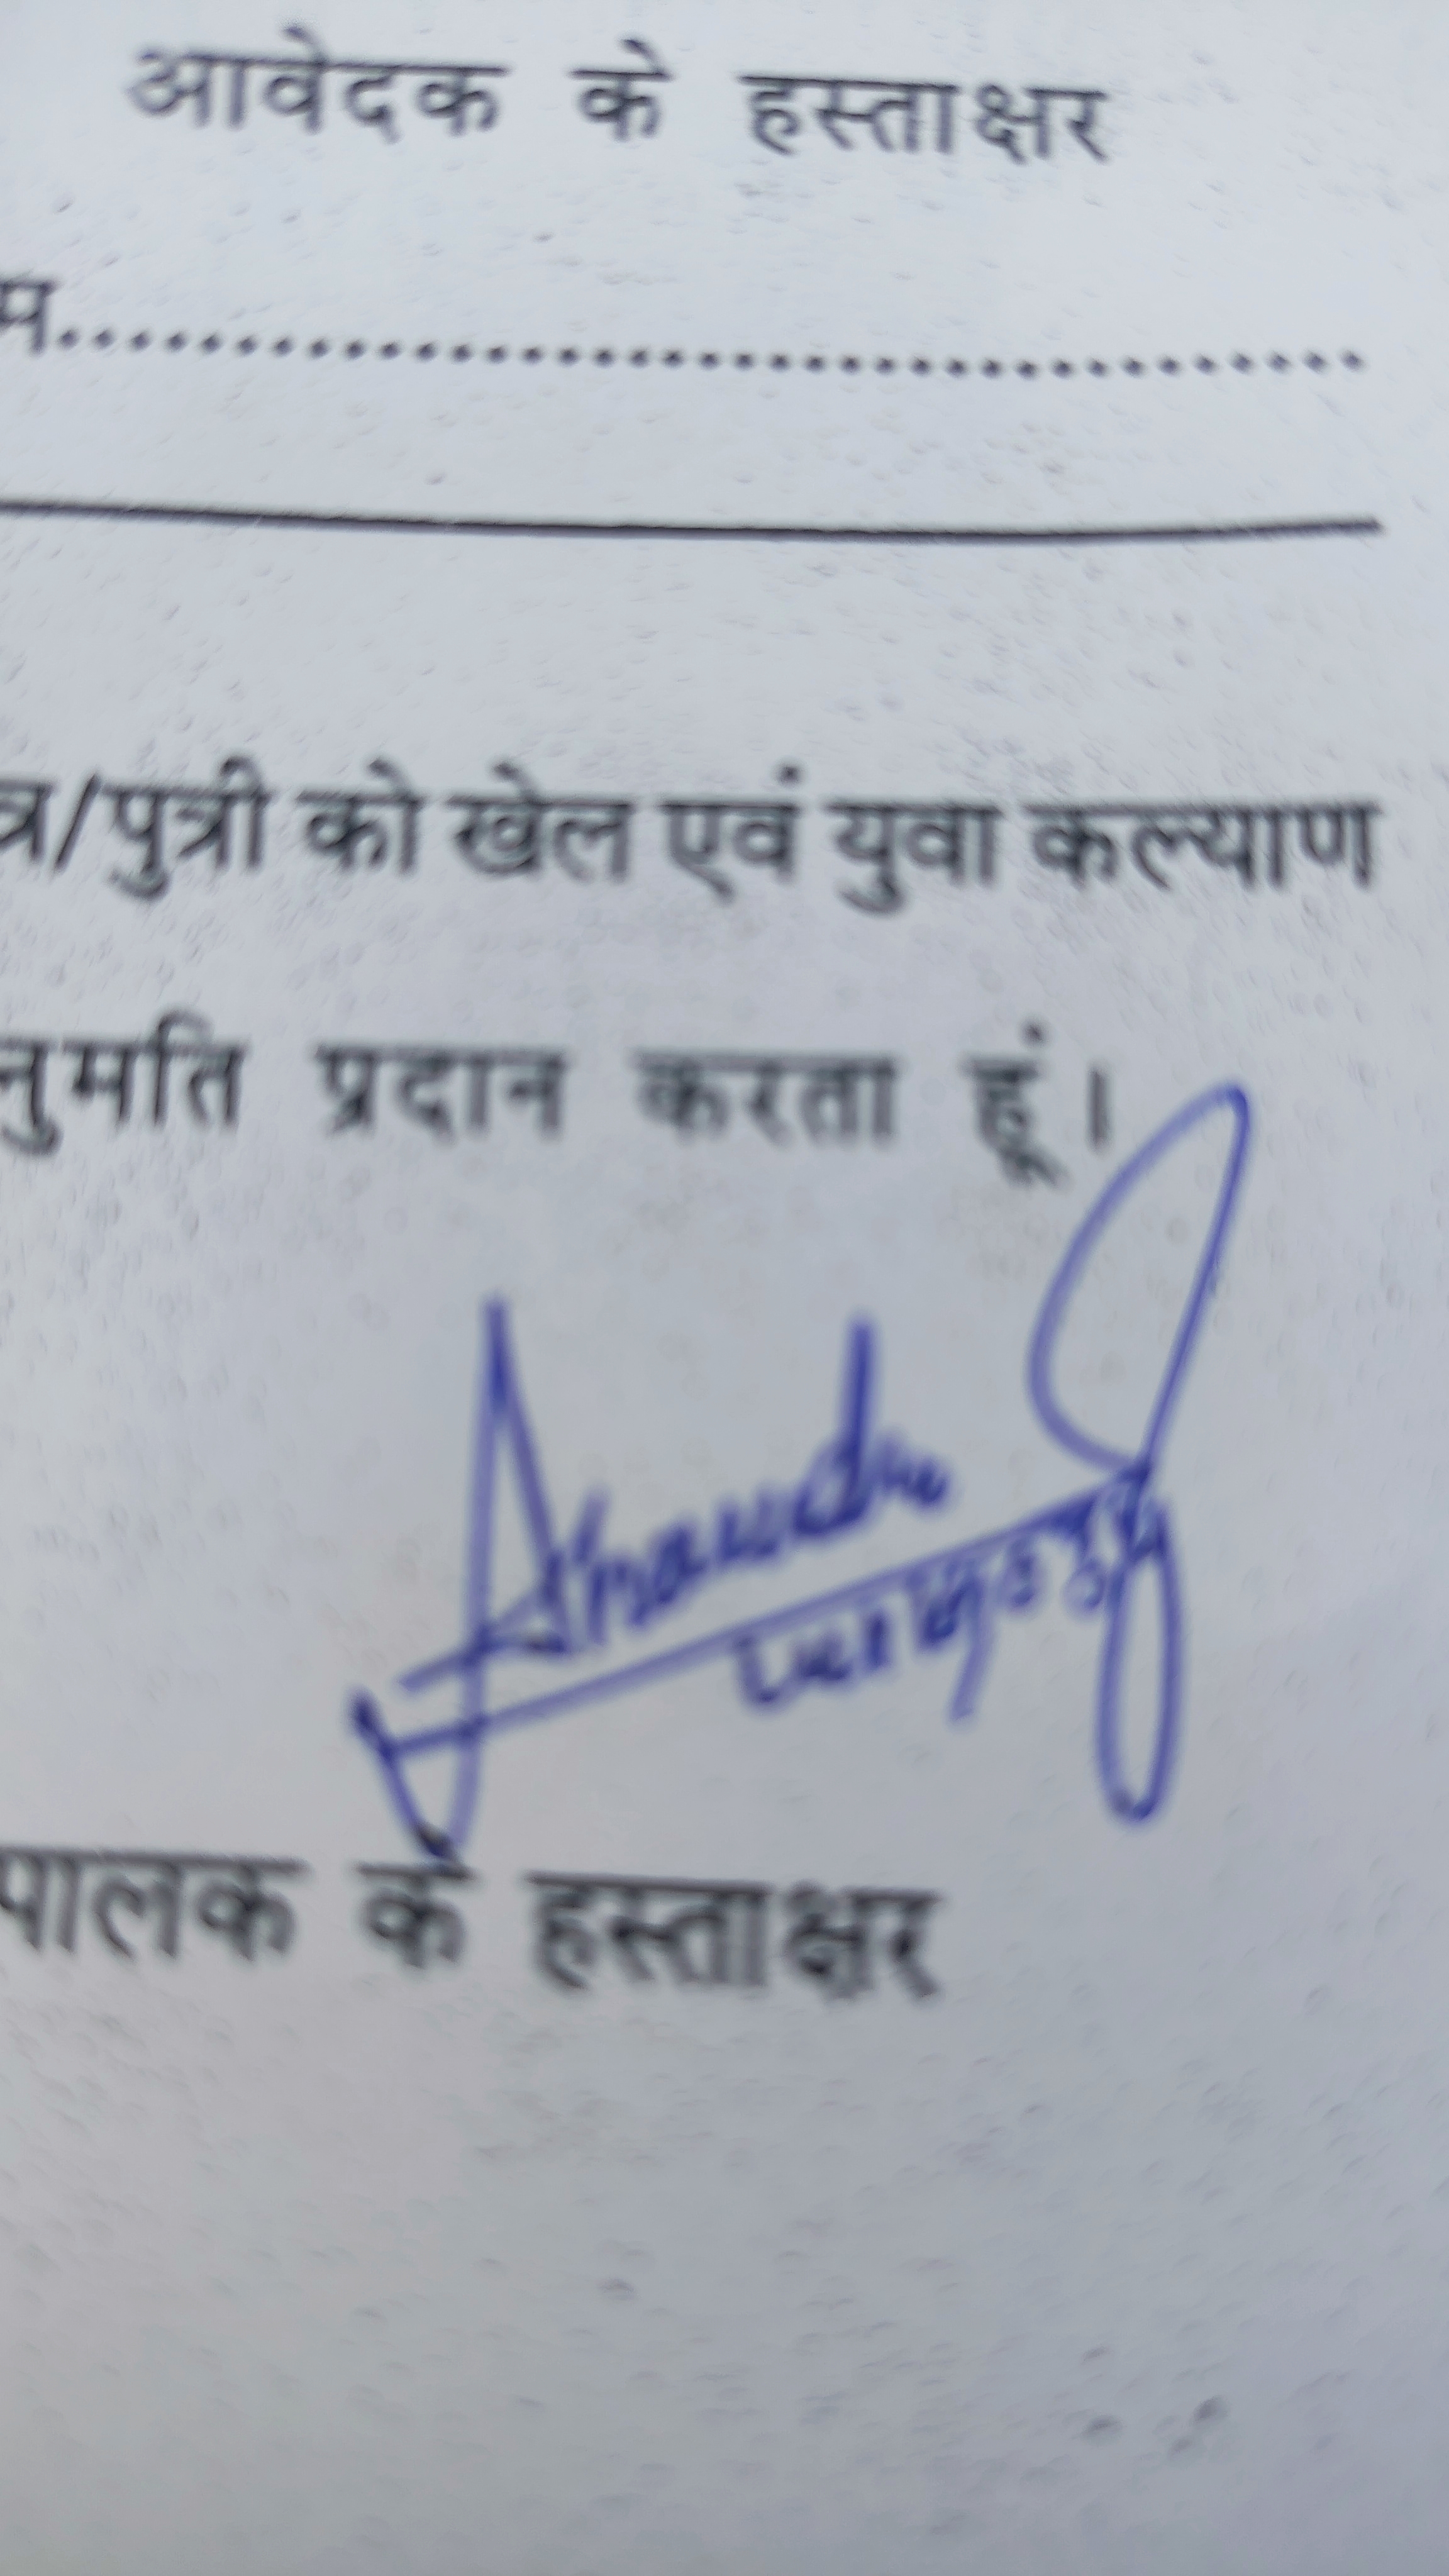 आवेदक के हस्ताक्षर
म.......................................
त्र/पुत्री को खेल एवं युवा कल्याण
नुमति प्रदान करता हूं।
पालक के हस्ताक्षर